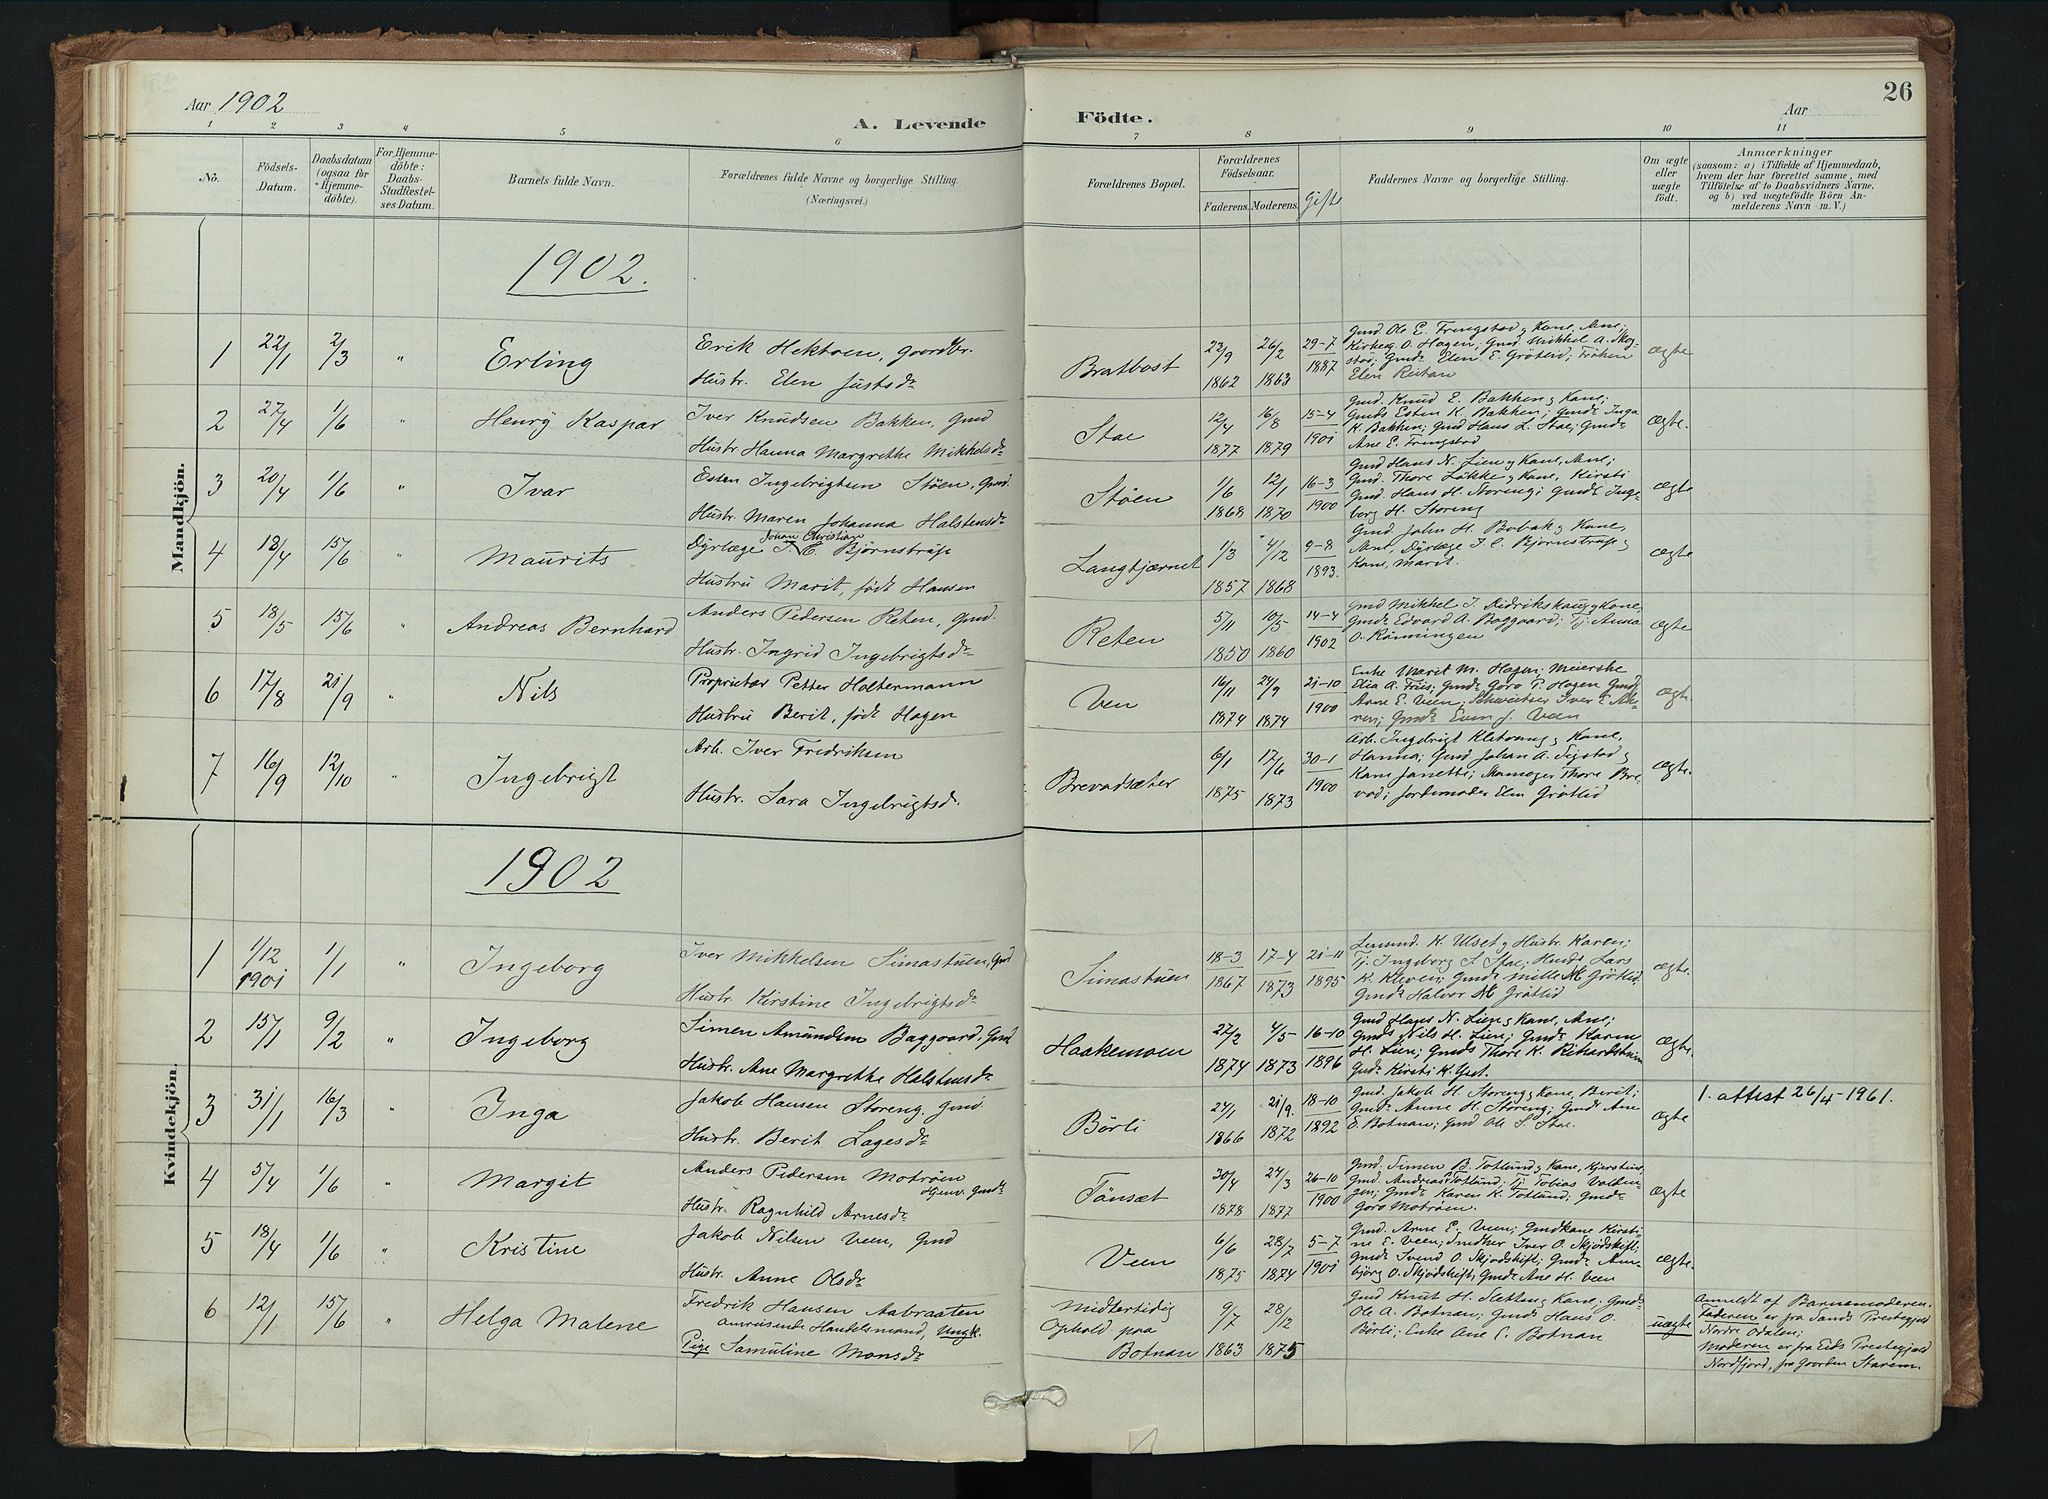 Aar 1902
A. Levende Födte.
Aar
26
1 2 3 4 5 6 7 8 9 10 11
No.
Födsels-Datum.
Daabsdatum (ogsaa for Hjemme-döbte).
For Hjemme-döbte: Daabs-Stadfæstel-ses Datum.
Barnets fulde Navn.
Forældrenes fulde Navne og borgerlige Stilling.
(Næringsvei.)
Forældrenes Bopæl.
Forældrenes Födselsaar.
Faderens. Moderens.
Gifte
Faddernes Navne og borgerlige Stilling.
Om ægte eller uægte födt.
Anmærkninger
(saasom: a) i Tilfælde af Hjemmedaab,
hvem der har forrettet samme, med
Tilföielse af to Daabsvidners Navne,
og b) ved uægtefödte Börn An-
melderens Navn m. V.)
Mandkjön.
1902.
1 22/1 2/3 " Erling
Erik Hektoen, gaardbr.
Hustr. Elen Justsdr
Bratbost 23/9 1862 26/2 1863 29-7 1887
Gmd. Ole E. Tringstad & Kane, Ane;
Elen Reitan
ægte
2 27/4 1/6 " Henry Kaspar
Iver Knudsen Bakken, Gmd
Hustr Hanna Margrethe Mikkelsdr
Stae 12/4 1877 16/8 1879 15-4 1901
Gmd. Knud E. Bakken & Kane;
Gmds Esten K. Bakken; Gmdr Inga
K. Bakken; Gmd Hans L. Stae; Gmdr
Ane E. Tringstad
ægte.
3 20/4 1/6 " Ivar
Esten Ingebrigtsen Støen, Gmd.
Hustr. Maren Johanna Halstensdr
Støen 1/6 1868 12/1 1870 16-3 1900
Gmd Hans N. Lien & Kane, Ane;
Gmd. Thore Løkke & Kane, Kirsti
Gmd. Hans H. Storeng; Gmdr Inge-
borg H. Storeng
ægte
4 18/4 15/6 " Maurits
Johan Christian
Dyrlæge J. C. Bjørnstrup
Hustru Marit, født Hansen
Langtjærnet 1/3 1857 4/12 1868 9-8 1893.
Gmd John H. Bobak & Kane,
Ane, Dyrlæge J. C. Bjørnstrup &
Kane, Marit.
ægte
5 18/5 15/6 " Andreas Bernhard
Anders Pedersen Reten, Gmd.
Hustr. Ingrid Ingebrigtsdr
Reten 5/11 1850 10/5 1860 14-4 1902
Gmd Mikkel J. Didrikshaug & Kane,
Gmds Edvard A. Baggaard; Tj. Anna
O. Rønningen
ægte
6 17/8 21/9 " Nils
Proprietær Petter Holtermann
Hustru Berit, født Hagen
Ven 16/11 1874 24/9 1874 21-10 1900
Enke Marit M. Hagen; Meierske
Elia A. Friis; Gmdr Goro P. Hagen Gmd
Arne E. Veen; Schweitser Iver E.
ægte
7 16/9 12/10 " Ingebrigt
Arb. Iver Fredriksen
Hustr. Sara Ingebrigtsdr.
Brevadsæter 6/1 1875 17/6 1873 30-1 1900
Arb. Ingebrigt Kletvang & Kane,
Hanna; Gmd Johan A. &
Kane Janetti; Thore Bre-
vad; Jordemoder Elen Grøtlid
ægte.
Kvindekjön.
1902
1 1/12 1901 1/1 " Ingeborg
Iver Mikkelsen Simastuen, Gmd
Hustr. Kirstine Ingebrigtsdr
Simastuen 18-3 1867 17-4 1873 21-11 1895
Lensmd. K. Ulset & Hustr. Karen;
Tj. Ingeborg S. Stae; Lars
K. Kleven; Gmdr Mille M Grøtlid
Gmdr Halvor M Grøtlid
ægte.
2 15/1 9/2 " Ingeborg
Simen Amundsen Baggaard, Gmd
Hustr. Ane Margrethe Halstensdr
Haakemoen 27/2 1874 4/5 1873 16-10 1896
Gmd Hans N. Lien & Kane, Ane;
Gmds Nils H. Lien; Gmdr Karen
H. Lien; Gmds Thore K. Rihardstuen
Gmdr Kirsti K.
ægte.
3 31/1 16/3 " Inga
Jakob Hansen Storeng, Gmd.
Hustr. Berit Lagesdr
Børli 24/1 1866 21/9. 1872 18-10 1892
Gmd. Jakob H. Storeng & Kane, Berit;
Gmdr Anne H. Storeng; Gmdr Ane
E. Botnan; Gmd Ole S. Stae.
ægte
1. attest 26/4-1961.
4 5/4 1/6 " Margit
Anders Pedersen Motrøen
Hjemv. Gmds
Hustr. Ragnhild Arnesdr
Tönsæt 30/4 1878 24/3 1877 26-10 1900
Gmd. Simen B. Totlund & Kane, Kjerstine,
Gmd. Andreas Totlund; Tj Tobias
Gmdr Karen K. Totlund; Gmdr
Goro Motrøen.
ægte
5 18/4 1/6 " Kristine
Jakob Nilsen Veen, Gmd
Hustr. Anne Olsdr
Veen 6/6 1875 28/7 1874 5-7 1901
Gmd. Arne E. Veen; Gmdkane Kirsti-
ne E. Veen; Iver O. Skjødskift;
Gmds Svend O. Skjødskift; Gmdr Am-
björg O. Skjødskift, Gmdr Ane H. Veen
ægte.
6 12/1 15/6 " Helga Malene
Fredrik Hansen Aabraaten
omreisende Handelsmand, Ungk.
Pige Samuline Monsdr
Midlertidig
Ophold paa
Botnan 9/7 1863 28/12 1875
Gmd Knut H. Sletten & Kane; Gmds
Ole A. Botnan; Gmds Hans O.
Børli; Enke Ane E. Botnan
uægte
Anmeldt af Barnemoderen.
Faderen er fra Sands Prestegjeld
Nordre Odalen;
Moderen er fra Eids Prestegjeld
Nordfjord, fra Gaarden Starem.